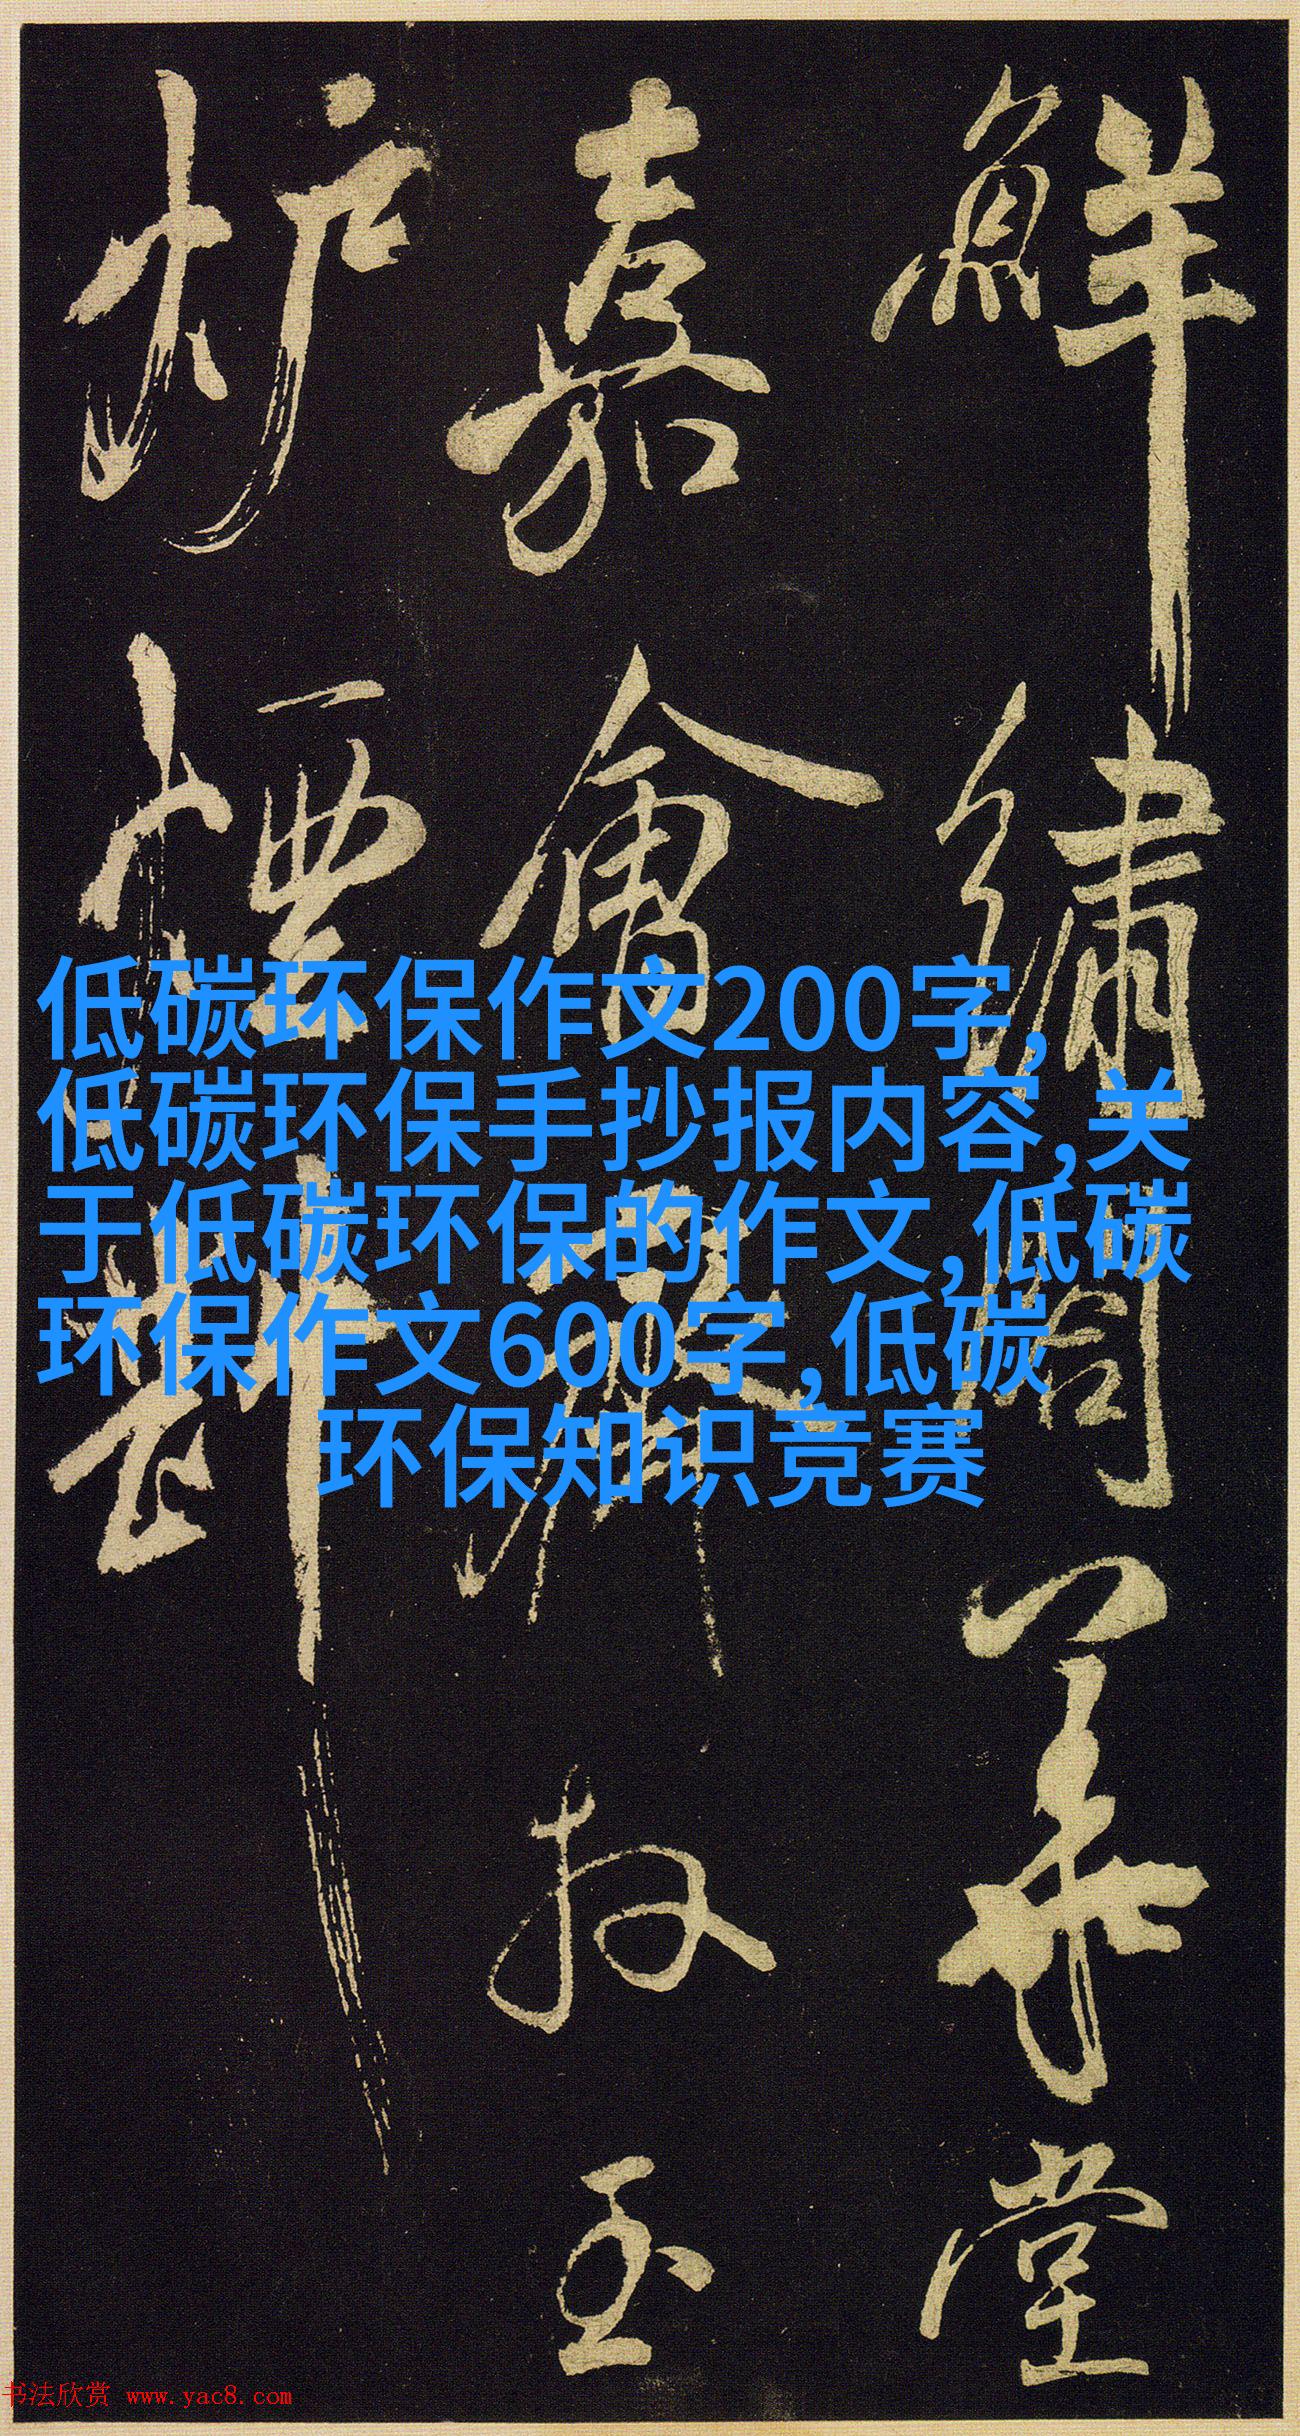 鮮繡閣華堂
嘉會羅列玉
炉檀
低碳环保作文200字,
低碳环保手抄报内容,关
于低碳环保的作文,低碳
环保作文600字,低碳
环保知识竞赛
书法欣赏 www.yac8.com